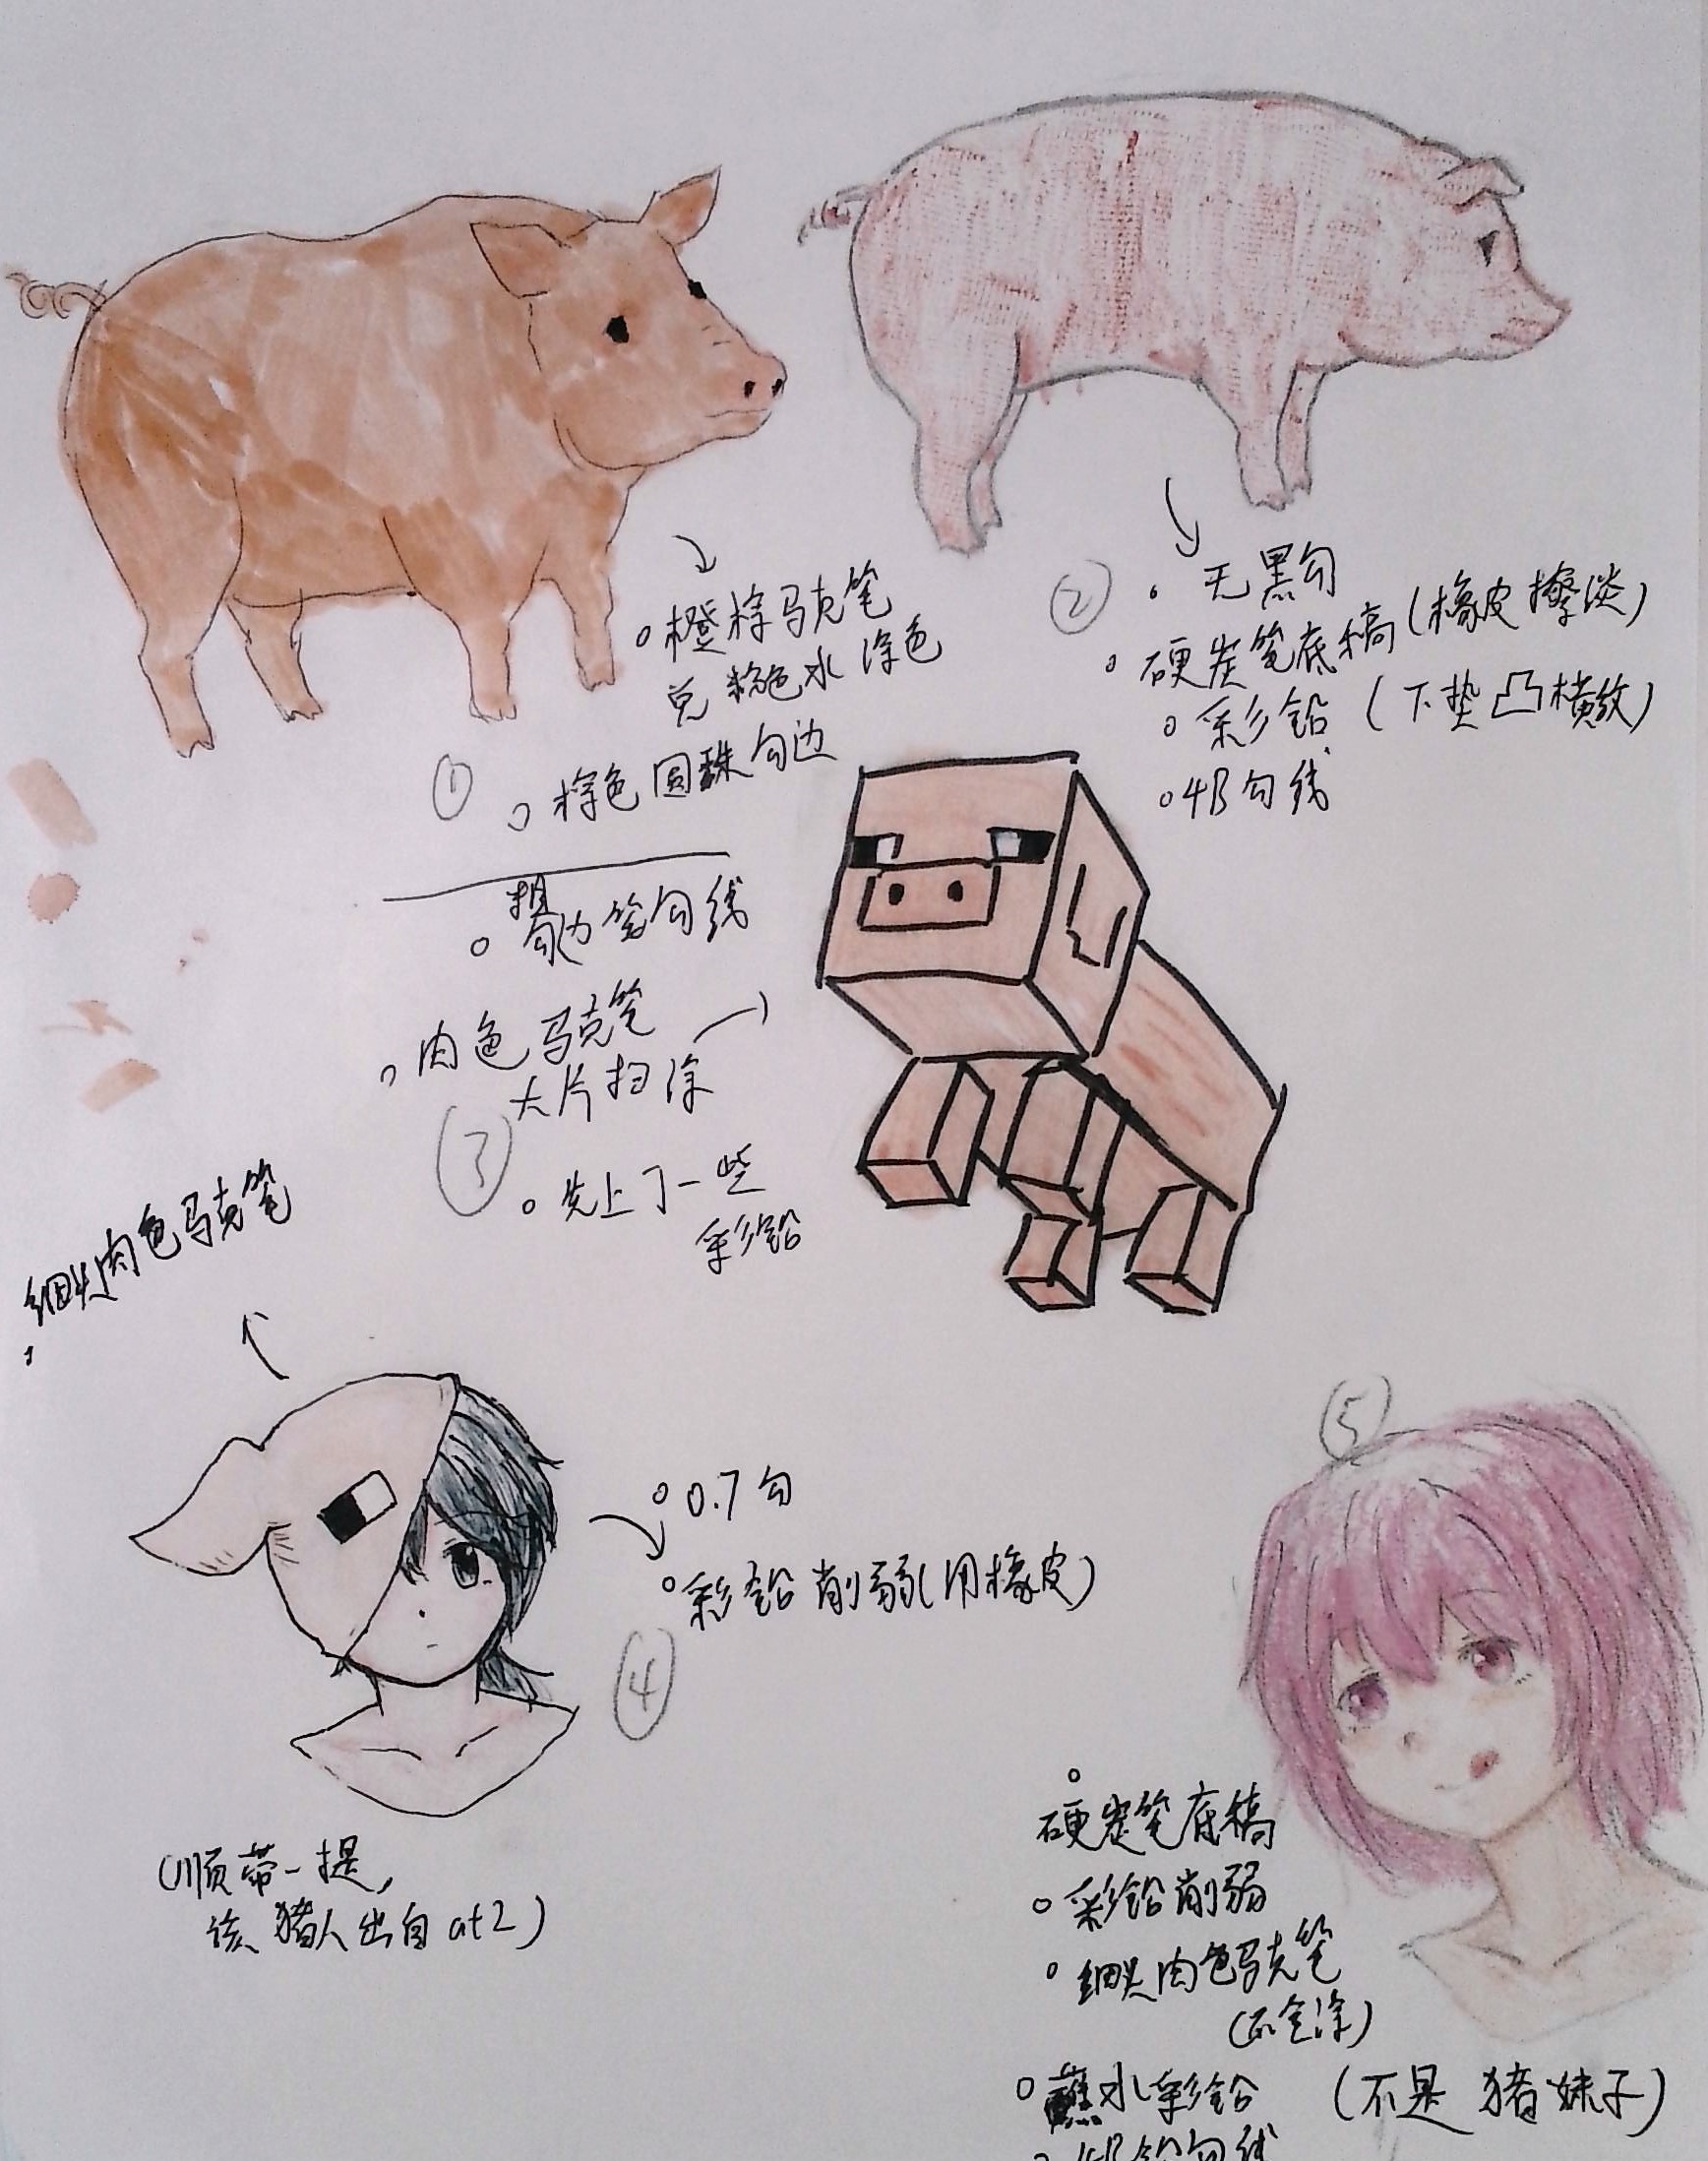 ①
橙棕马克笔
兑粉色水涂色
棕色圆珠勾边
②
无黑勾
硬炭笔底稿(橡皮擦淡)
彩铅(下垫凸横纹)
4B勾线
粗
勾边笔勾线
肉色马克笔
大片扫涂
③
先上了一些
彩铅
细头肉色马克笔
0.7勾
彩铅削弱(用橡皮)
④
(顺带一提,
该猪人出自at2)
⑤
硬炭笔底稿
彩铅削弱
细头肉色马克笔
(不全涂)
蘸水彩铅
(不是猪妹子)
4B铅勾线